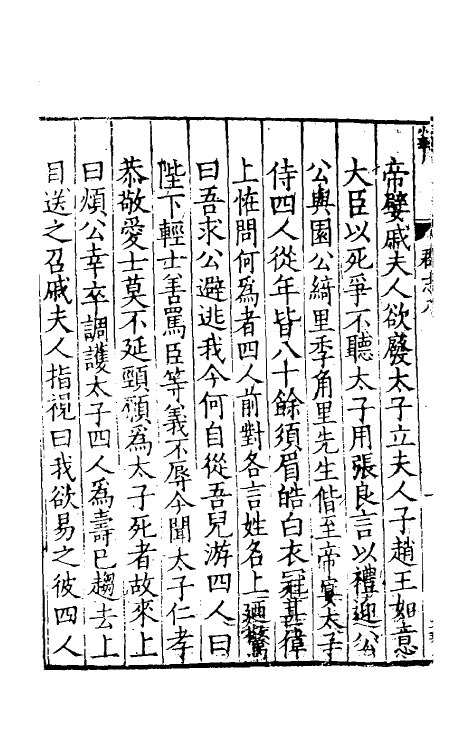 帝嬖戚夫人欲廢太子立夫人子趙王如意
大臣以死爭不聽太子用張良言以禮迎公
公與園公綺里季角里先生偕至帝宴太子
侍四人從年皆八十餘須眉皓白衣冠甚偉
上怪問何爲者四人前對各言姓名上迺驚
曰吾求公避逃我今何自從吾兒游四人曰
陛下輕士善罵臣等義不辱今聞太子仁孝
恭敬愛士莫不延頸願爲太子死者故來上
曰煩公幸卒調護太子四人爲壽已趨去上
目送之召戚夫人指視曰我欲易之彼四人